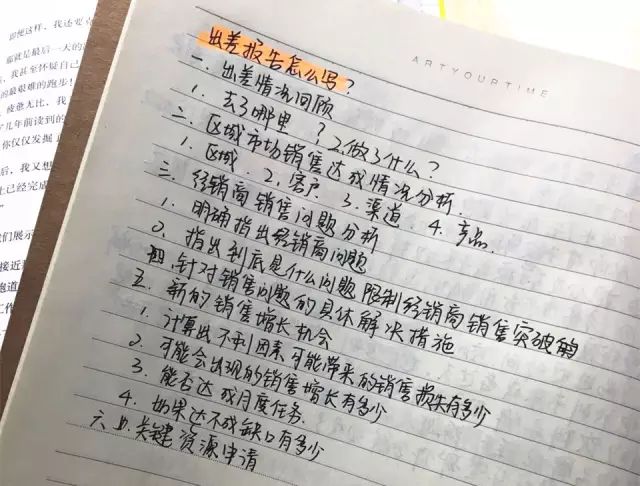 即使这样,我还要点
那就是最后一天的
我甚至怀疑自己
的最艰难的跑步!
疲惫无比,我
几年前读到的
你仅仅发掘
后,我又想
上已经完成
们展示
接近
跑道
工作
ARTYOURTIME
出差报告怎么写?
一、出差情况回顾
1. 去了哪里?2.做了什么?
二、区域市场销售达成情况分析.
1. 区域. 2. 客户 3. 渠道. 4. 产品.
三、经销商销售问题分析
1. 明确指出经销商问题
2. 指出到底是什么问题限制经销商销售突破的
四.针对销售问题的具体解决措施
五. 新的销售增长机会
1. 计算出不利因素可能带来的销售损失有多少
2. 可能会出现的销售增长有多少
3. 能否达成月度任务
4. 如果达不成缺口有多少
六、关键资源申请